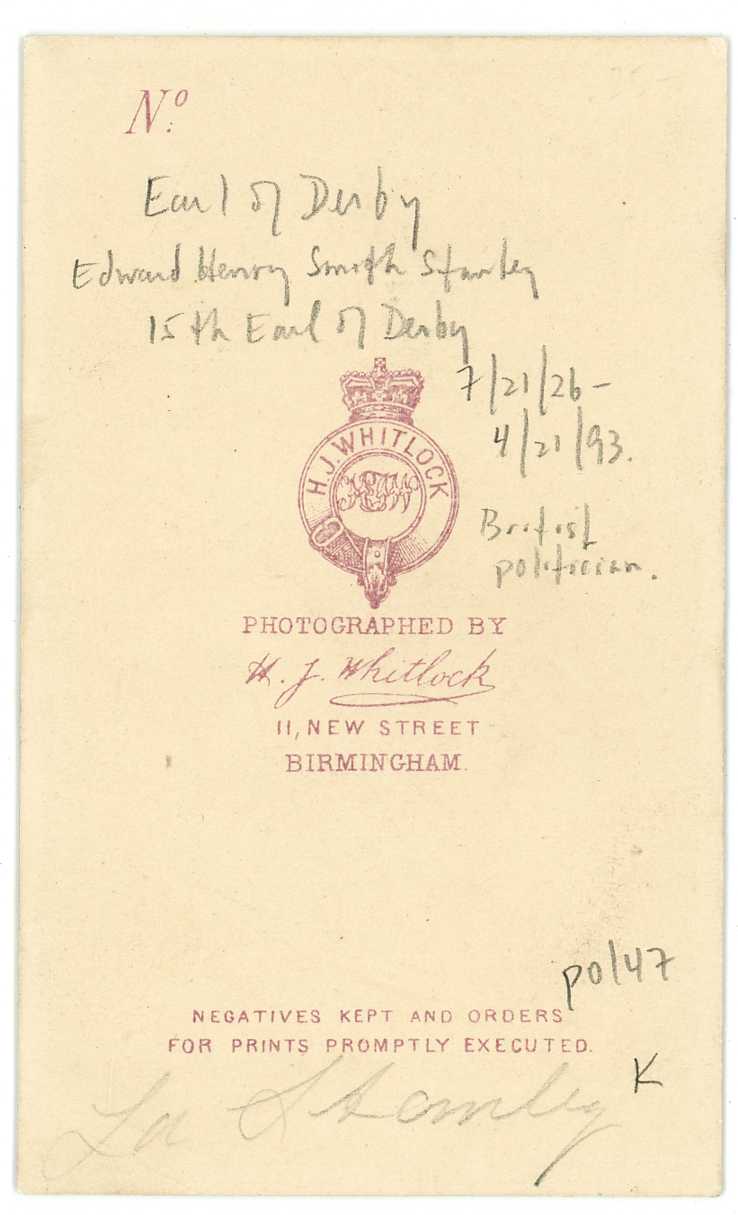 Nº.
Earl of Derby
Edward Henry Smith Stanley
15th Earl of Derby
7/21/26-
4/21/93.
H.J. WHITLOCK
HJW
British
politician.
PHOTOGRAPHED BY
H. J. Whitlock
11, NEW STREET
BIRMINGHAM.
po/47
NEGATIVES KEPT AND ORDERS
FOR PRINTS PROMPTLY EXECUTED.
K
Ld Stanley